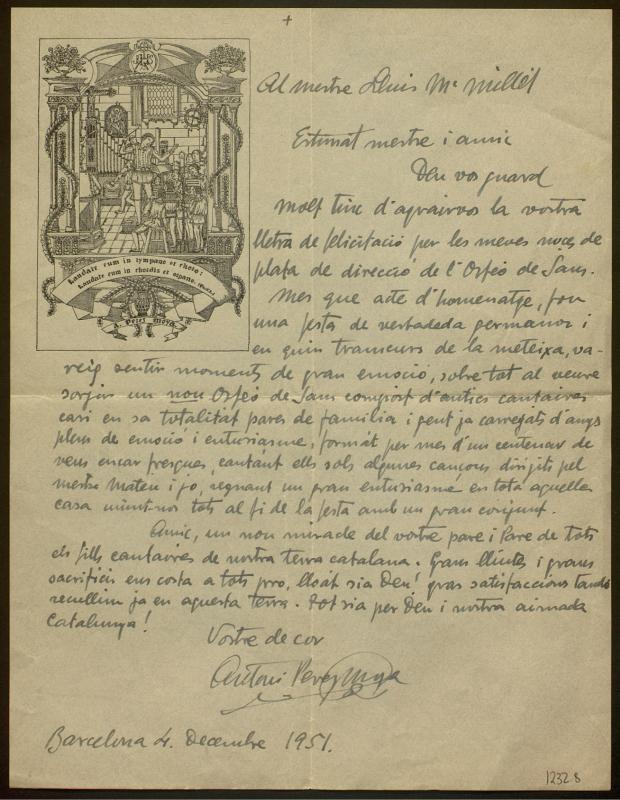 +
Al mestre Lluis Mª Millet
Estimat mestre i amic
Deu vos guard
Molt tinc d'agrairvos la vostra
lletra de felicitació per les meves noces de
plata de direcció de l'Orfeó de Sans.
Mes que acte d'homenatge, fou
una festa de vertadeda germanor i
en quin transcurs de la meteixa, va-
reig sentir moments de gran emoció, sobre tot al veure
sorgir un nou Orfeó de Sans compost d'antics cantaires
casi en sa totalitat pares de familia i gent ja carregats d'anys
plens de emoció i entusiasme, format per mes d'un centenar de
veus encar fresques, cantant ells sols algunes cançons dirigits pel
mestre Mateu i jo, regnant un gran entusiasme en tota aquella
casa unint-nos tots al fi de la festa amb un gran conjunt.
Amic, un nou miracle del vostre pare i Pare de tots
els fills cantaires de nostra terra catalana. Grans lluites i grans
sacrificis ens costa a tots pro, lloat sia Deu! gras satisfaccions també
recullim ja en aquesta terra. Tot sia per Deu i nostra aimada
Catalunya!
Vostre de cor
Antoni Perez Moya
Barcelona 4. Decembre 1951.
Laudate eum in tympano et choro:
Laudate eum in chordis et organo.
A. Pérez Moya
1232 8